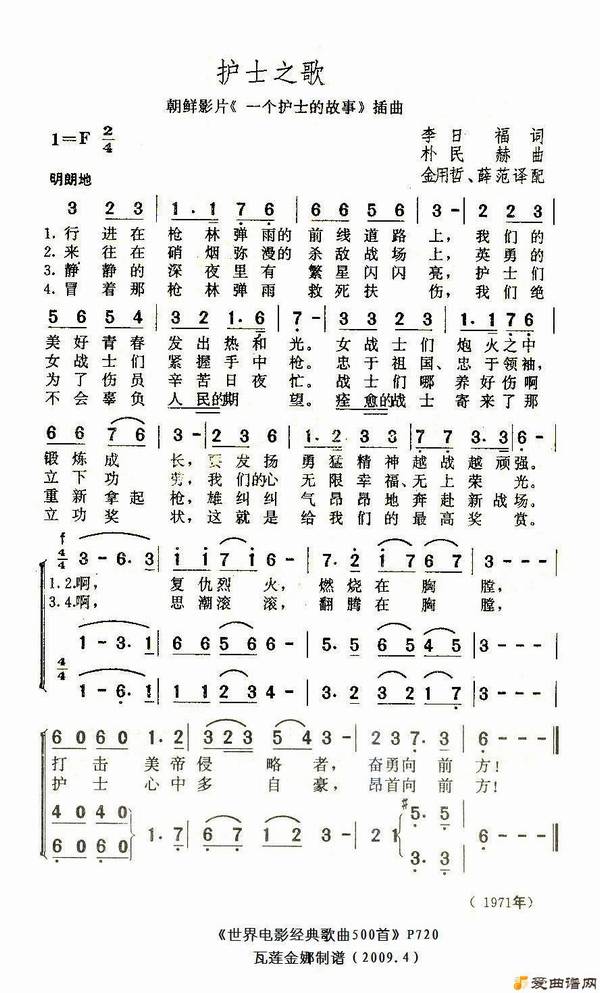 护士之歌
朝鲜影片《一个护士的故事》插曲
1=F 2/4
李日福词
朴民赫曲
金用哲、薛范译配
明朗地
3 2 3 | 1·1 7 6 | 6 6 5 6 | 3 - | 2 2 3 |
1.行进在枪林弹雨的前线道路上,我们的
2.来往在硝烟弥漫的杀敌战场上,英勇的
3.静静的深夜里有繁星闪闪亮,护士们
4.冒着那枪林弹雨救死扶伤,我们绝
5 6 5 4 | 3 2 1·6 | 7 - | 3 3 2 3 | 1·1 7 6 |
美好青春发出热和光。女战士们炮火之中
女战士们紧握手中枪。忠于祖国、忠于领袖,
为了伤员辛苦日夜忙。战士们哪养好伤啊
不会辜负人民的期望。痊愈的战士寄来了那
6 6 7 6 | 3 - | 2 3 6 | 1·2 3 3 | 2 2 3·3 | 6 - |
锻炼成长,要发扬勇猛精神越战越顽强。
立下功劳,我们的心无限幸福、无上荣光。
重新拿起枪,雄纠纠气昂昂地奔赴新战场。
立功奖状,这就是给我们的最高奖赏。
f
4/4 3 - 6·3 | 1 1 7 1 6 - | 2·1 7 6 7 | 3 - - |
1.2.啊,复仇烈火,燃烧在胸膛,
3.4.啊,思潮滚滚,翻腾在胸膛,
1 - 3·1 | 6 6 5 6 6 - | 4·6 5 4 5 | 3 - - |
4/4 1 - 6·1 | 3 3 2 3 1 - | 2·3 2 1 7 | 3 - - |
6 0 6 0 | 1·2 | 3 2 3 3 - | 5 5 4 3 - | 2 3 7 3·3 | 6 - - |
打击美帝侵略者,奋勇向前方!
护士心中多自豪,昂首向前方!
4 0 4 0 #5·5
6 0 6 0 | 1·7 | 6 7 1 2 - | 3 3 2 1 - | 2 1 7 | 6 - - |
3·3
(1971年)
《世界电影经典歌曲500首》P720
瓦莲金娜制谱(2009.4)
爱曲谱网